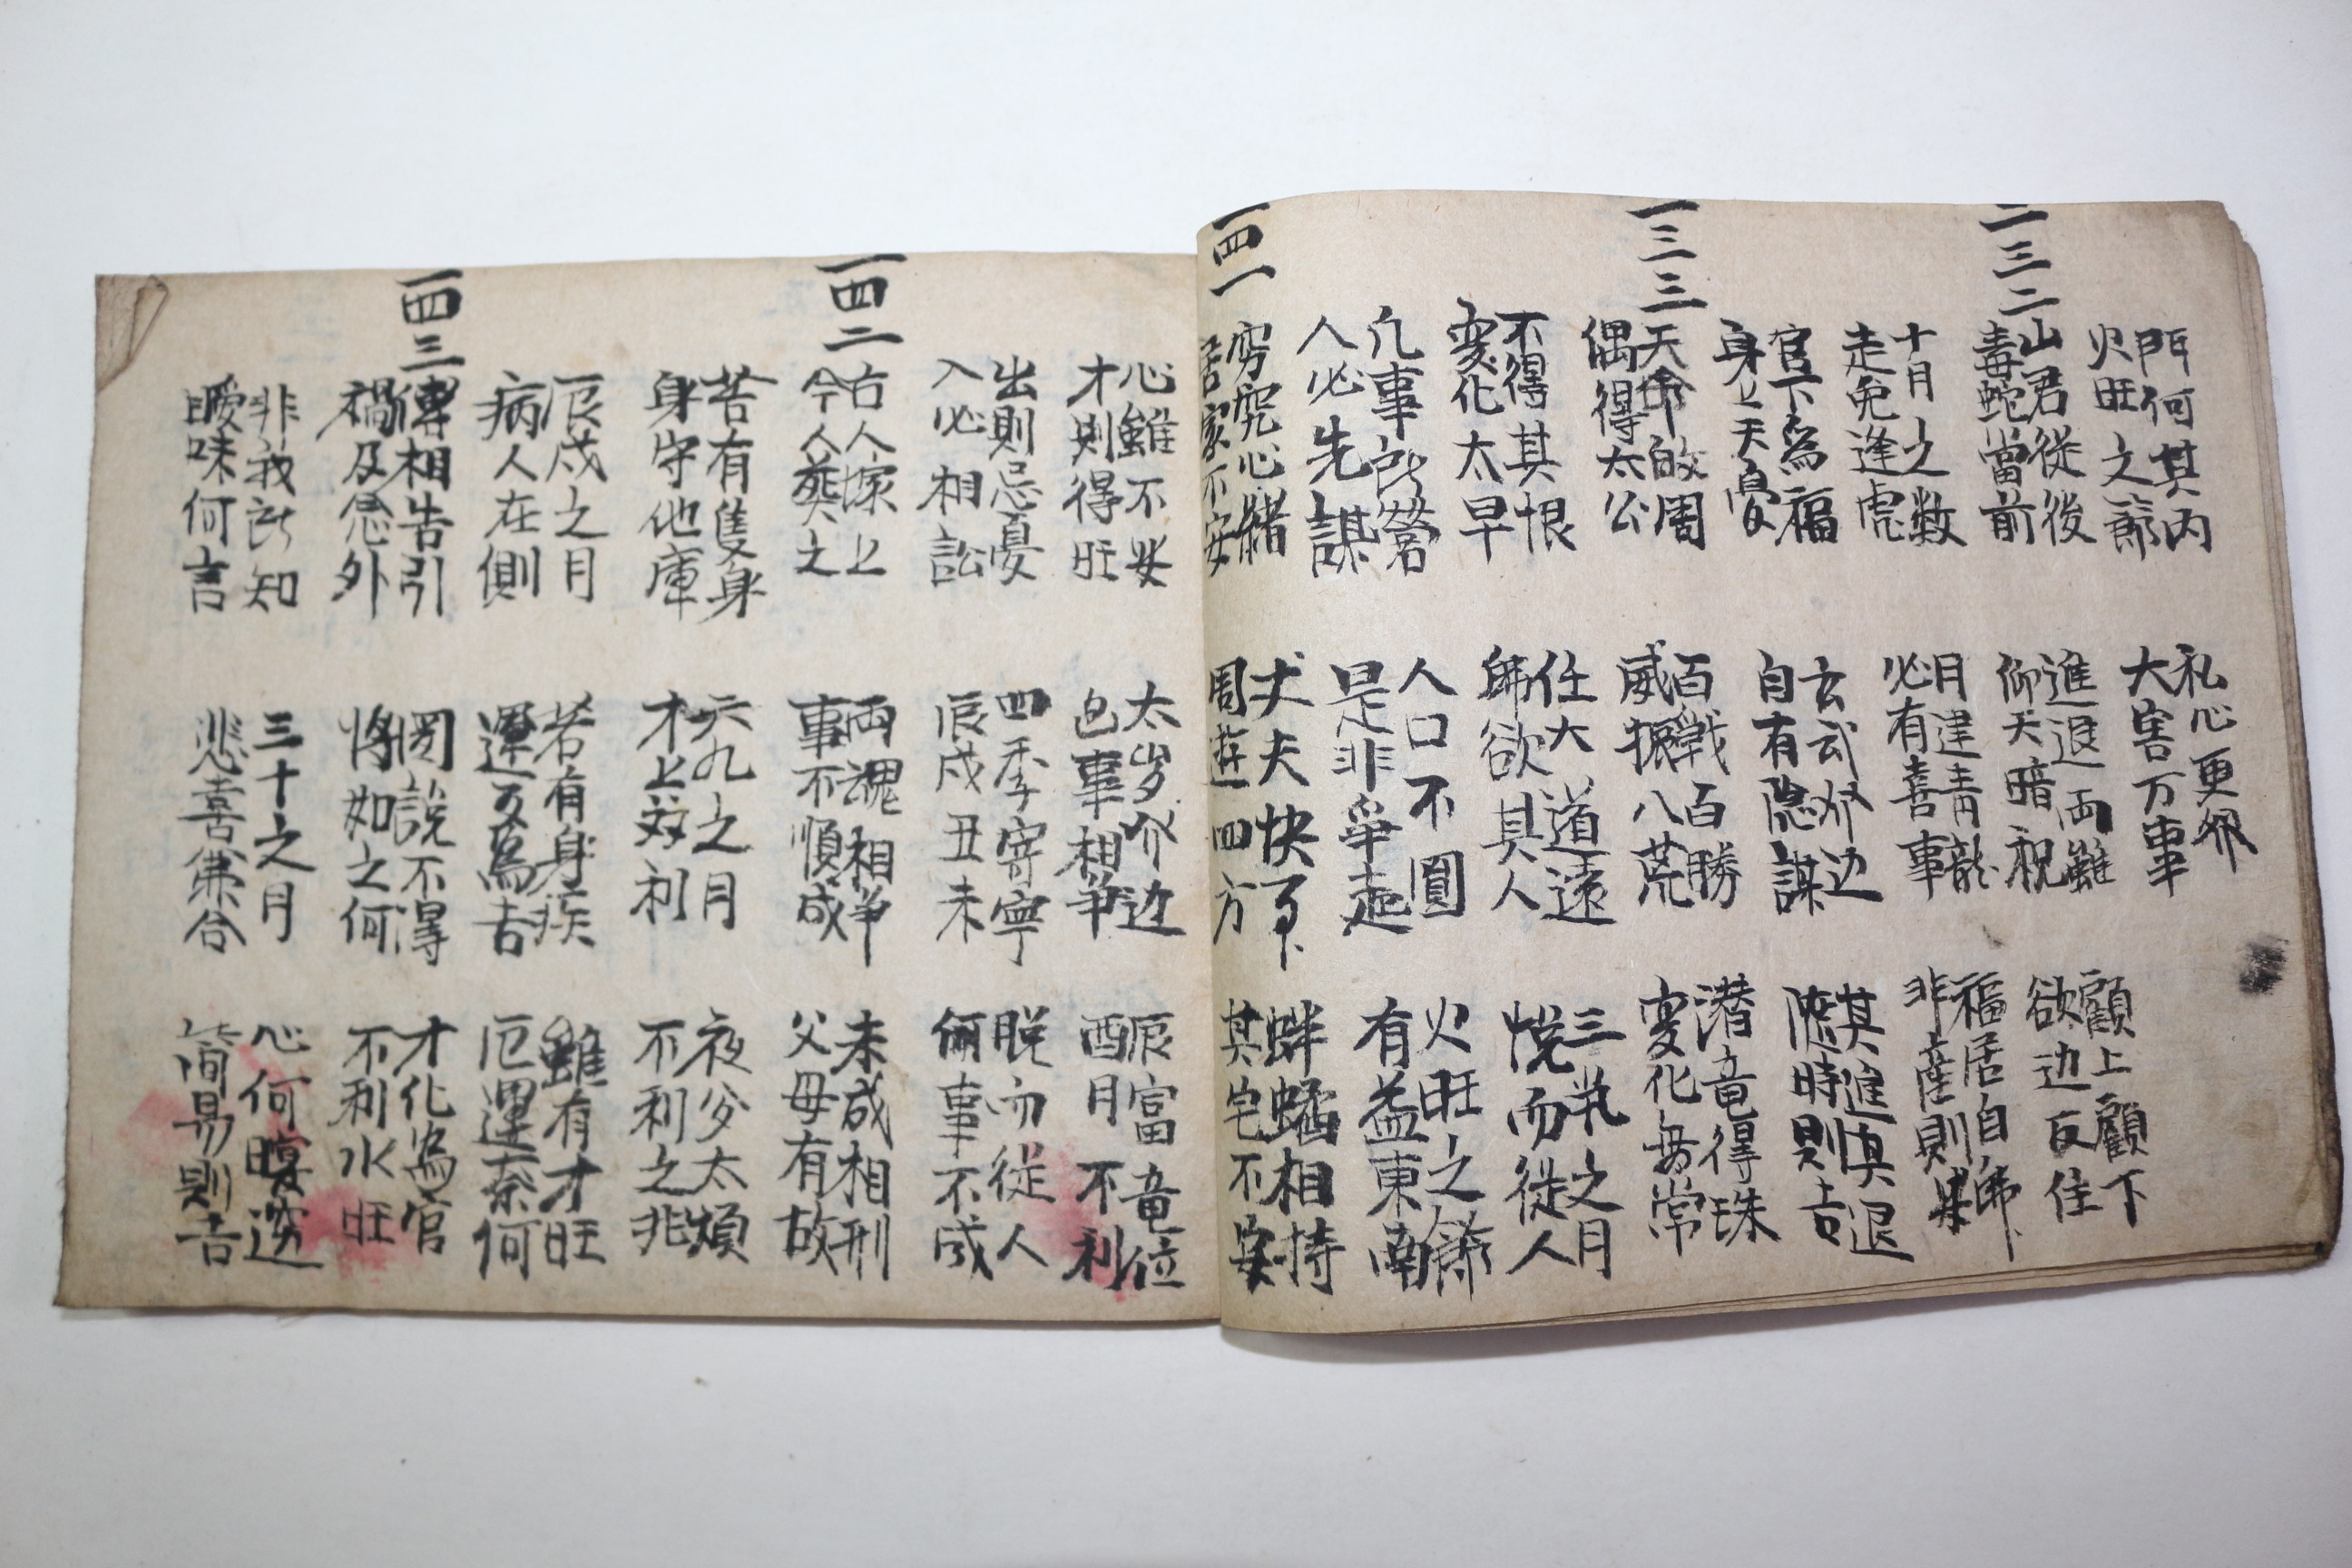 門何其内
火旺之節
私心更邪
大害万事
顧上顧下
欲边反住
一三二
山君從後
毒蛇當前
進退両雖
仰天暗祝
福居自歸
非産則
十月之数
走兔逢虎
月建青龍
必有喜事
其進其退
随時則吉
官下為福
身上天憂
玄武 边
自有隐謀
潜竜得珠
变化無常
一三三
天命的周
偶得太公
百戰百勝
威振八荒
三 之月
悅而從人
不得其恨
变化太早
任大道遠
歸欲其人
火旺之節
有益東南
凡事所營
人必先謀
人口不圓
是非爭走
蚌 相持
其宅不安
一四一
穷究心緒
居家不安
丈夫快
周遊四方
辰富竜位
酉月不利
心雖不安
才則得旺
太岁 近
色事相爭
脫而從人
倆事不成
出則忌憂
入必相訟
四季寄寧
辰戌丑未
未成相刑
父母有故
一四二
古人塚上
今人葬之
両魂相爭
事不順成
夜 太煩
不利之兆
苦有隻身
身守他庫
六九之月
才上 利
雖有才旺
厄運奈何
辰戌之月
病人在側
若有身疾
運 為吉
才化為官
不利水旺
一四三
傳相告引
禍及急外
罔說不得
將如之何
心何 遠
簡易則吉
非我所知
曖昧何言
三十之月
悲喜兼合